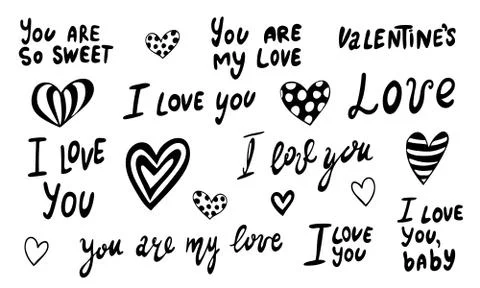 YOU ARE
SO SWEET
YOU ARE
MY LOVE
VALENTINE'S
I LOVE YOU
LOVE
I LOVE
YOU
I love you
you are my love
I LOVE
YOU
I LOVE
YOU,
BABY